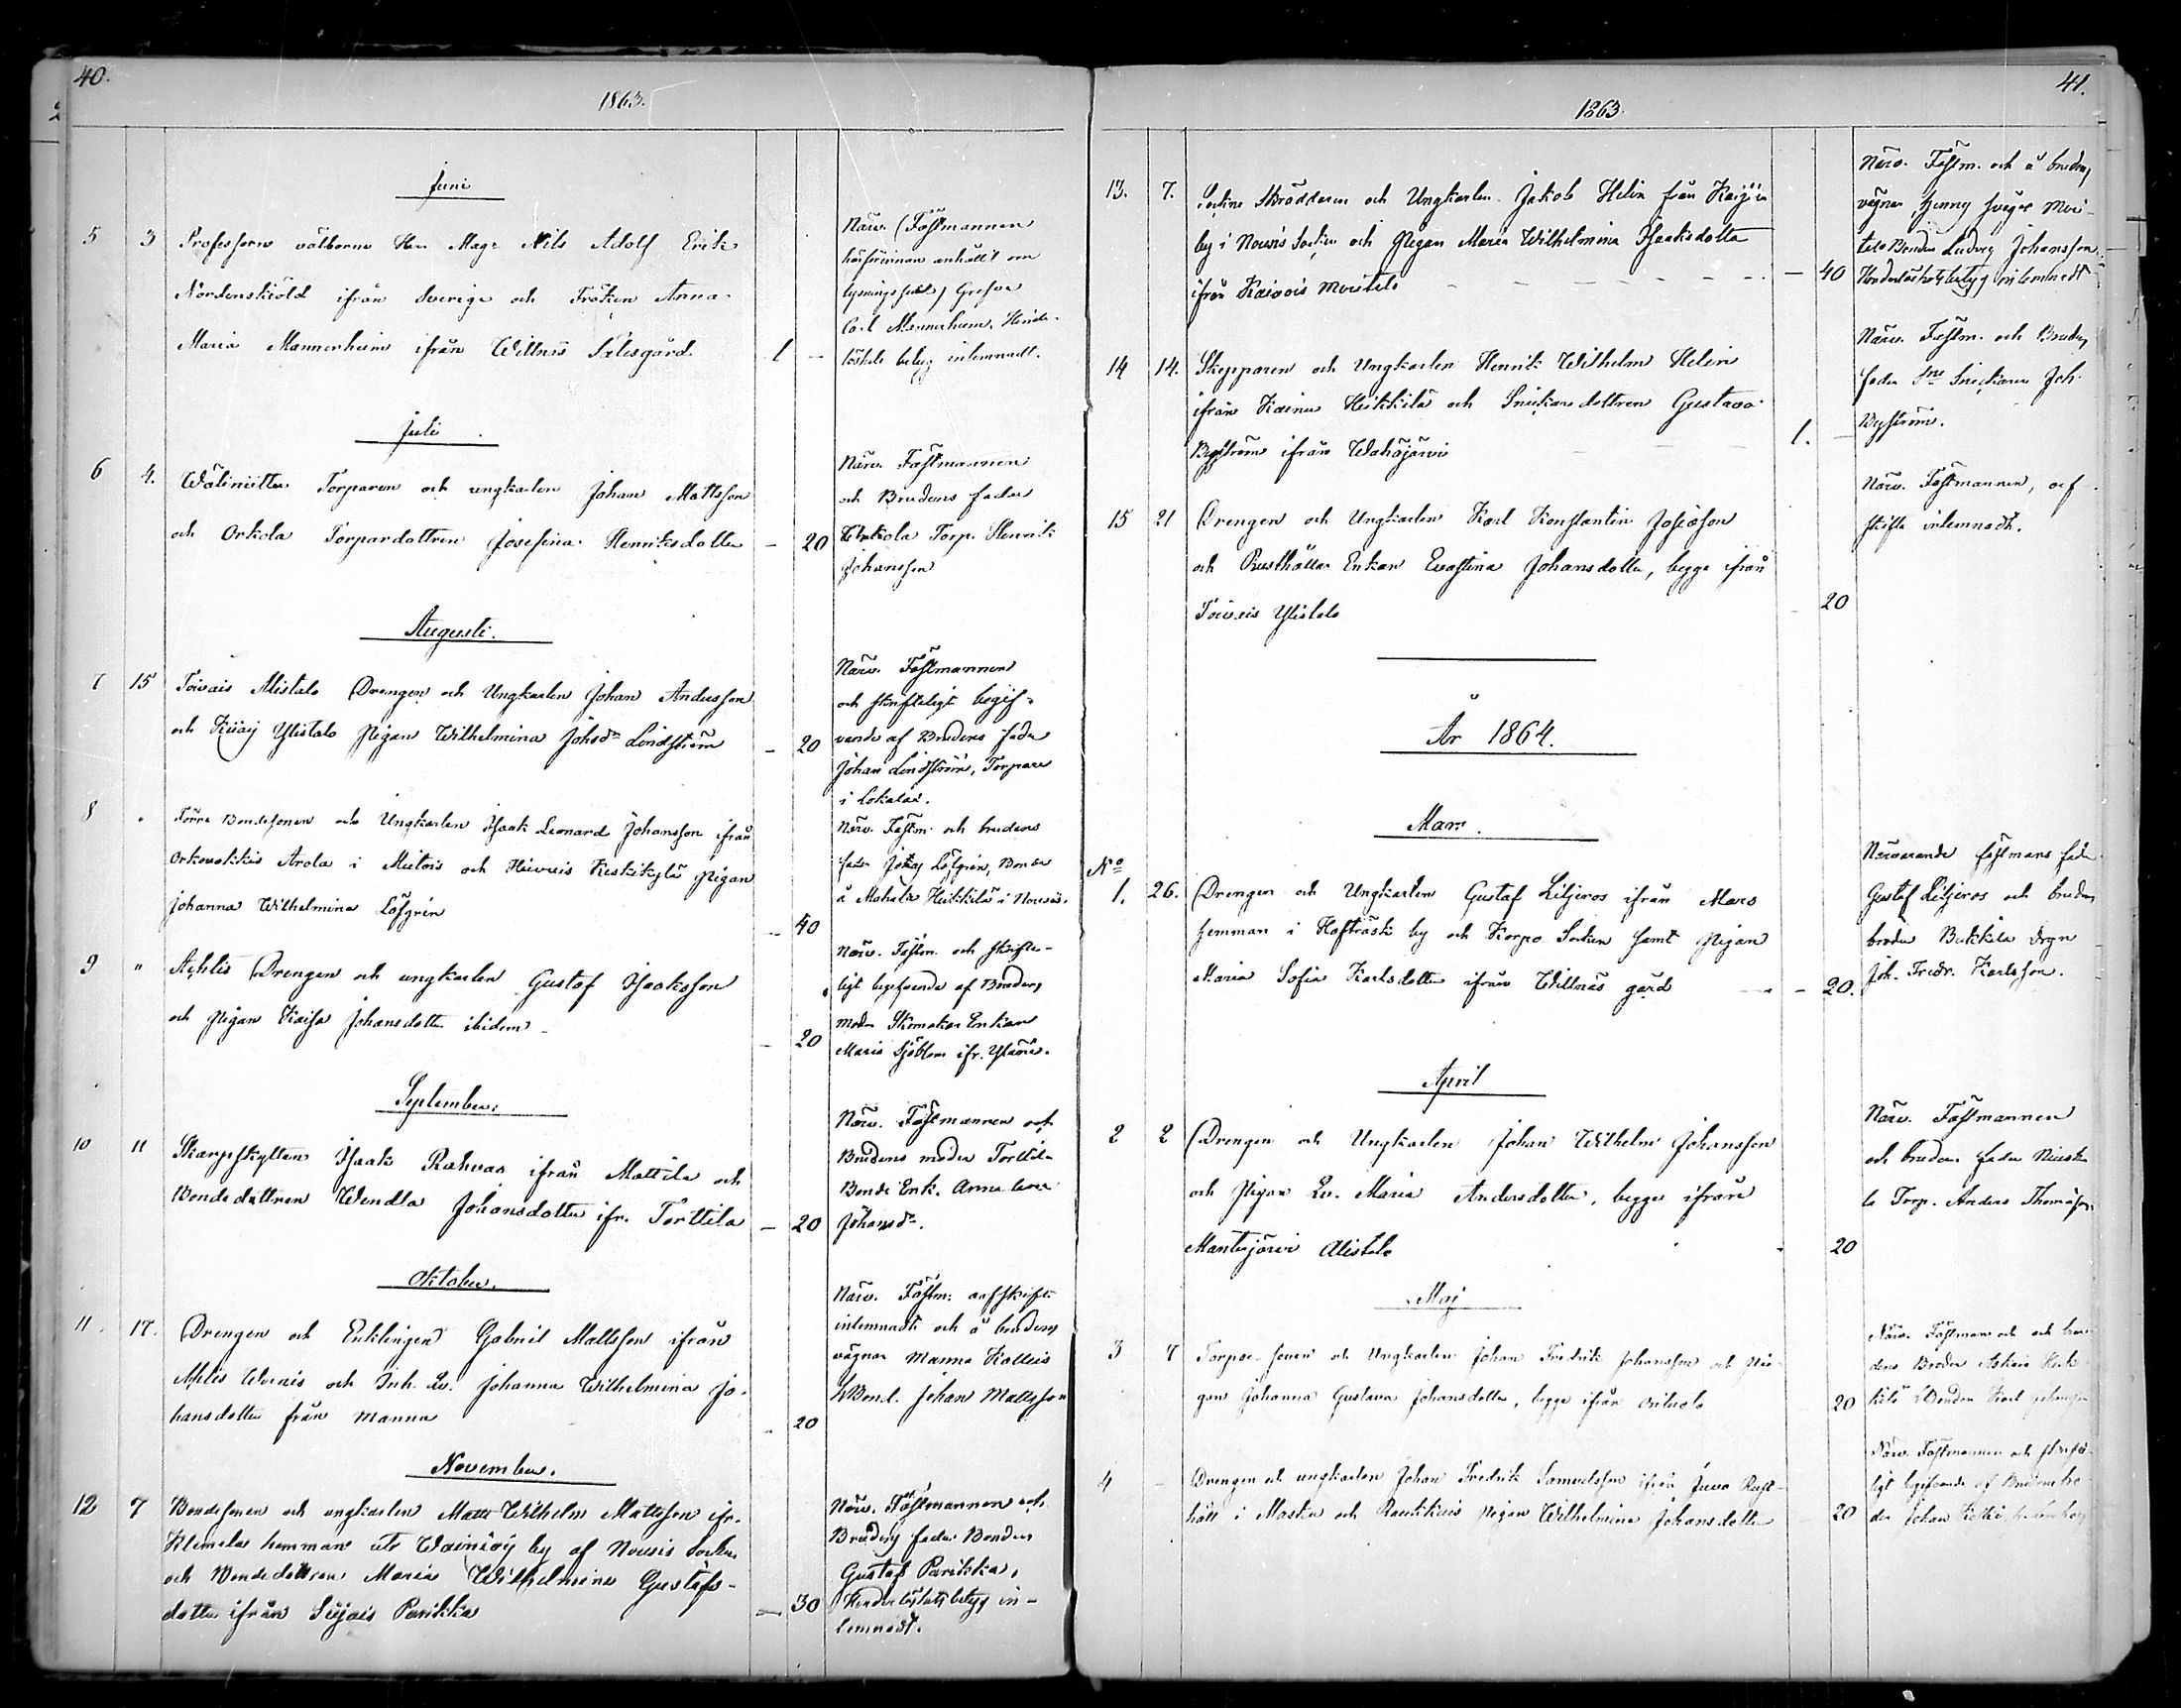 40.
1863.
Juni
5 3 Professorn välborne Herr Mag. Nils Adolf Erik
Nordenskiöld ifrån Sverige och Fröken Anna
Maria Mannerheim ifrån Willnäs Sätesgård 1 –
Närv. (Fästmannen
anhållit om
lysningssedel) Grefve
Carl Mannerheim. Hinder-
löshets betyg inlemnadt.
Juli
6 4. Torparen och ungkarlen Johan Mattsson
och Orkola Torpardottren Josefina Henriksdotter – 20
Närv. Fästmannen
och Brudens fader
Torp. Henrik
Johansson
Augusti.
7 15 Toivais Alistalo Drengen och Ungkarlen Johan Andersson
och Ylistalo Pigan Wilhelmina Johsdr Lindström – 20
Närv. Fästmannen
och skrifteligt begif-
vande af Brudens fader
Johan Lindström, Torpare
i Lokalax.
8 " Bondesonen och Ungkarlen Isaak Leonard Johansson ifrån
Arola i och Keskikylä Pigan
Johanna Wilhelmina Löfgrén – 40
Närv. Fästm. och brudens
fader Löfgrén, Bonde
å Mahala Heikkilä i Nousis.
9 " Drengen och ungkarlen Gustaf Isaksson
och Pigan Kaisa Johansdotter ibidem – 20
Närv. Fästm. och skrifte-
ligt begifvande af Brudens
moder Skomakar Enkan
Maria Sjöblom ifr. Yläne.
September.
10 11 Skarpskytten Isaak Rahvas ifrån Mattila och
Bondedottren Wendla Johansdotter ifr. Torttila – 20
Närv. Fästmannen och
Brudens moder Torttila
Bonde Enk. Anna Lena
Johansdr.
Oktober.
11. 17. Drengen och Enklingen Gabriel Mattsson ifrån
och Inh. Johanna Wilhelmina Jo-
hansdotter från Manna – 20
Närv. Fästm: arfskifte
inlemnadt och å brudens
vägnar Manna
Johan Mattsson
November.
12 7 Bondesonen och ungkarlen Matts Wilhelm Mattsson ifr.
Klemela hemman uti by af Nousis Socken
och Bondedottren Maria Wilhelmina Gustafs-
dotter ifrån Parikka – 30
Närv. Fästmannen och
Brudens fader Bonden
Gustaf Parikka,
Hinderlöshetsbetyg in-
lemnadt.
41.
1863.
13. 7. Sockne Skräddaren och Ungkarlen Jakob Helin från
by i Nousis Socken och Pigan Maria Wilhelmina Isaaksdotter
ifrån – 40
Närv. Fästm. och å brudens
vägnar hennes svåger
Bonden Ludvig Johansson.
Hinderlöshetsbetyg inlemnadt
14 14. Skepparen och Ungkarlen Henrik Wilhelm Helin
ifrån Heikkilä och Snickare dottren Gustava
Byström ifrån Wahajärvi 1. –
Närv. Fästm. och Brudens
fader Snickaren Joh.
Byström.
15 21 Drengen och Ungkarlen Karl Konstantin
och Rusthållar Enkan Evastina Johansdotter, begge ifrån
Ylistalo 20
Närv. Fästmannen, arf-
skifte inlemnadt.
År 1864.
Mars.
No
1. 26. Drengen och Ungkarlen Gustaf Liljeros ifrån Mars
hemman i by och Korpo Socken samt Pigan
Maria Sofia Karlsdotter ifrån Willnäs gård – 20.
Närvarande fästmans fader
Gustaf Liljeros och brudens
broder Drgn
Joh. Fredr. Karlsson.
April
2 2 Drengen och Ungkarlen Johan Wilhelm Johansson
och Pigan Ev. Maria Andersdotter, begge ifrån
Mantejärvi Alistalo 20
Närv. Fästmannen
och brudens fader
Torp. Anders Thomasson
Maj
3 7 Torpare-sonen och Ungkarlen Johan Fredrik Johansson och Pi-
gan Johanna Gustava Johansdotter, begge ifrån 20
Närv. Fästmannen och bru-
dens Broder
Bonden Karl Johansson
4 – Drengen och ungkarlen Johan Fredrik Samuelsson ifrån Rust-
håll i Masku och Pigan Wilhelmina Johansdotter 20
Närv. Fästmannen och skrifte-
ligt begifvande af Brudens fa-
der Johan